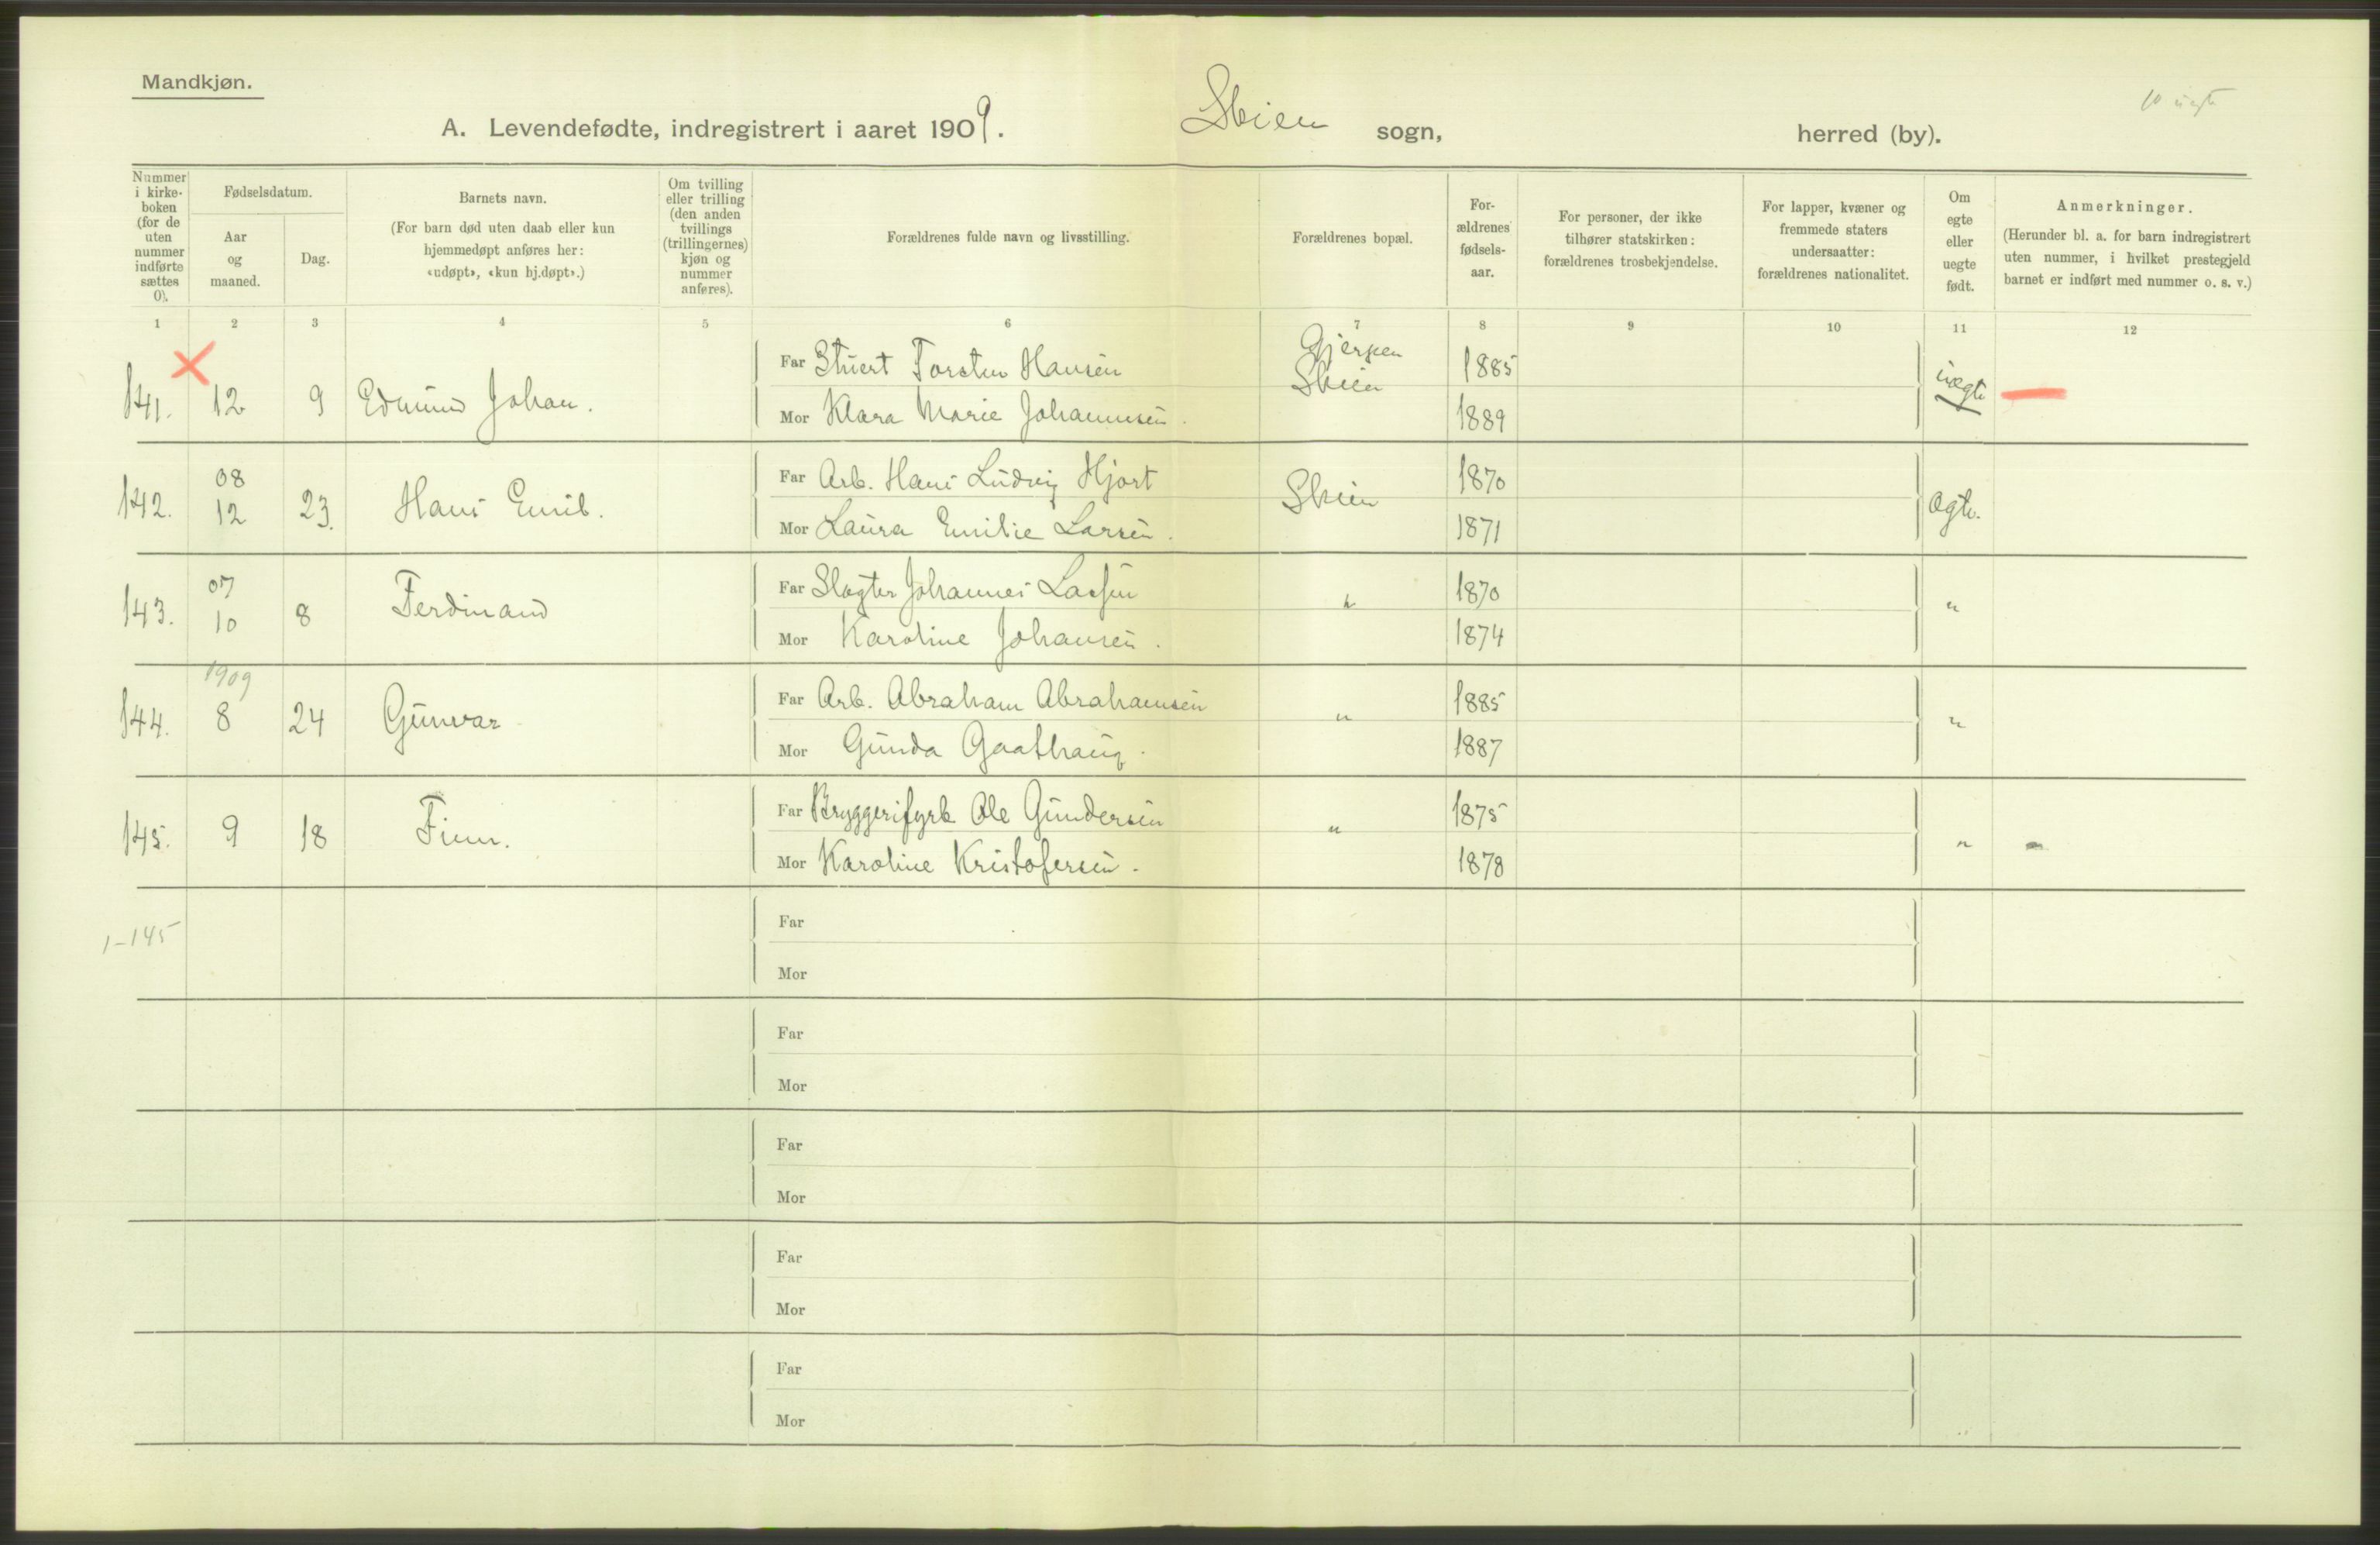 Mandkjøn.
10 uegte
A. Levendefødte, indregistrert i aaret 1909. Skien sogn, herred (by).
Nummer i kirke-boken (for de uten nummer indførte sættes 0).
Fødselsdatum.
Aar og maaned.
Dag.
Barnets navn.
(For barn død uten daab eller kun hjemmedøpt anføres her: «udøpt», «kun hj.døpt».)
Om tvilling eller trilling (den anden tvillings (trillingernes) kjøn og nummer anføres).
Forældrenes fulde navn og livsstilling.
Forældrenes bopæl.
For-ældrenes fødsels-aar.
For personer, der ikke tilhører statskirken: forældrenes trosbekjendelse.
For lapper, kvæner og fremmede staters undersaatter: forældrenes nationalitet.
Om egte eller uegte født.
Anmerkninger.
(Herunder bl. a. for barn indregistrert uten nummer, i hvilket prestegjeld barnet er indført med nummer o. s. v.)
1 2 3 4 5 6 7 8 9 10 11 12
Far Stuert Torsten Hansen Gjerpen 1885
141. 12 9 Edmund Johan. Skien uegte
Mor Klara Marie Johannesen. 1889
08 Far Arb. Hans Ludvig Hjort 1870
142. 12 23. Hans Emil. Skien Ægte.
Mor Laura Emilie Larsen. 1871
07 Far Slagter Johannes Larsen 1870
143. 10 8 Ferdinand " "
Mor Karoline Johansen. 1874
1909 Far Arb. Abraham Abrahamsen 1885
144. 8 24 Gunvar " "
Mor Gunda Gaathaug. 1887
Far Bryggerifyrb Ole Gundersen 1875
145. 9 18 Finn. " "
Mor Karoline Kristofersen. 1878
Far
1-145
Mor
Far
Mor
Far
Mor
Far
Mor
Far
Mor